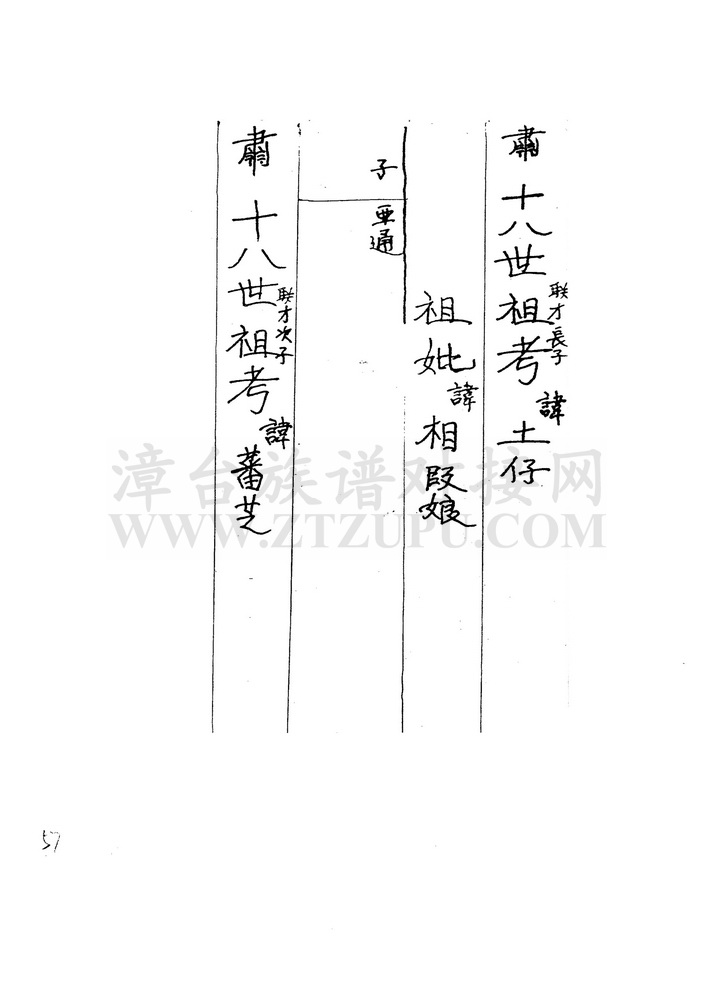 肅十八世祖考聯才長子諱土仔
祖妣諱相段娘
子 亜通
肅十八世祖考聯才次子諱蕃芝
漳台族谱对接网
WWW.ZTZUPU.COM
57